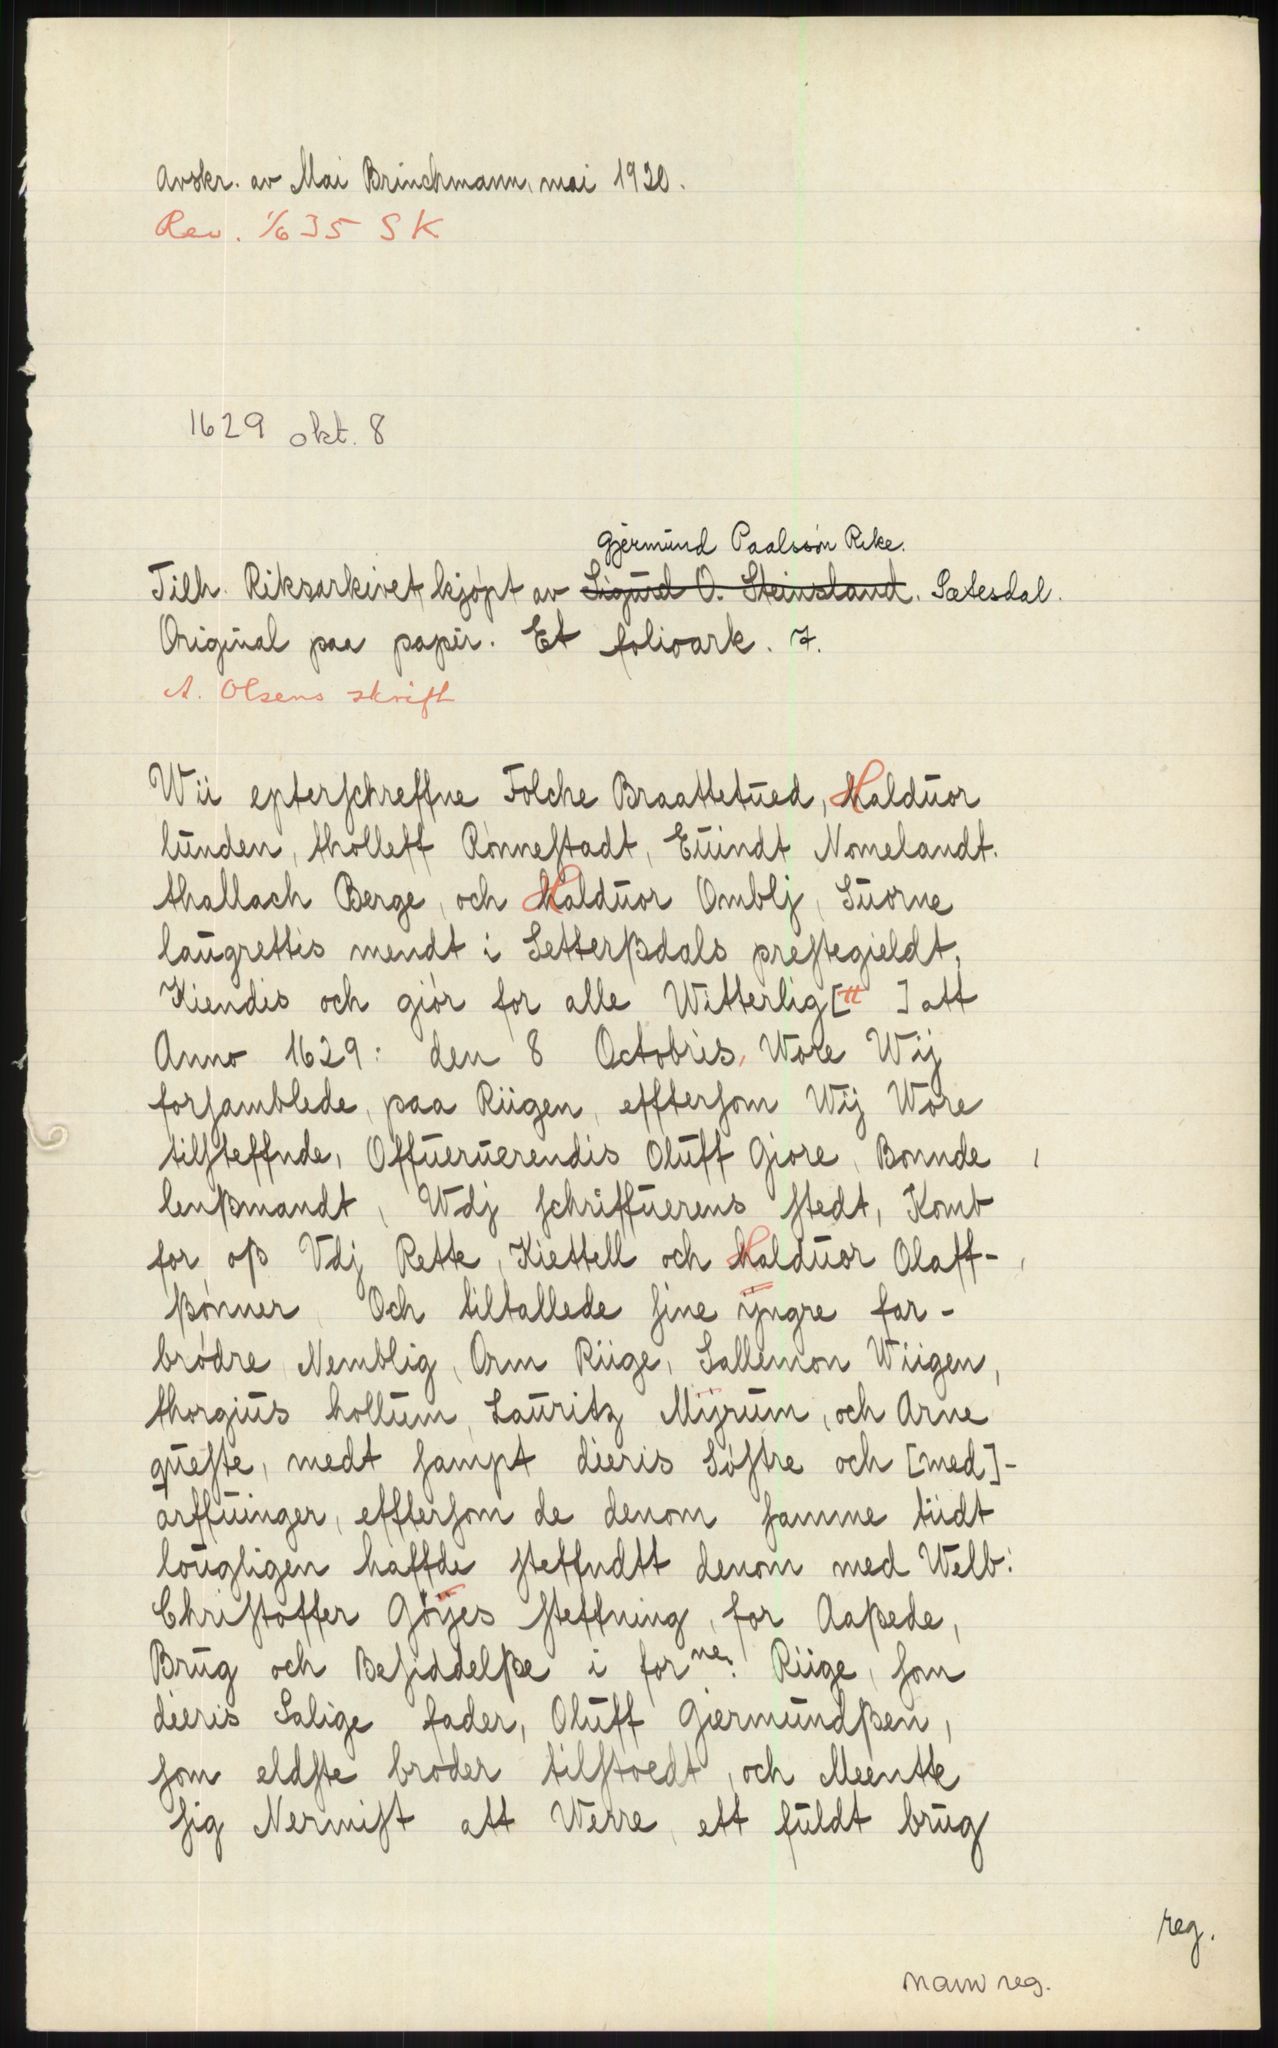 Avskr. av Mai Brinchmann, mai 1920.
Rev. 1/6 35 S K
1629 okt. 8
Gjermund Paalssøn Rike.
Tilh. Riksarkivet kjøpt av Sigurd O. Steinsland. Sætesdal.
Original paa papir. Et folioark. 7.
A. Olsens skrift
Wii epterschreffne Folche Braattetued, Halduor
lunden, tholleff Rønnestadt, Euindt Nomelandt.
thallach Berge, och Halduor Omblj, Suorne
laugrettis mendt i Setterßdals prestegieldt,
Kiendis och giør for alle Witterlig[tt ] att
Anno 1629: den 8 Octobris, Wore Wij
forsamblede, paa Riigen, efftersom Wij Wore
tilsteffnde, Offueruerendis Oluff Giøre, Bonnde
lenßmandt, Wdj schriffuerens stedt, Komb
for oß Vdj Rette, Kiettell och Halduor Olaff-
ßønner Och tiltallede sine ÿngre far-
brødre Nemblig, Orm Riige, Sallemon Wiigen,
thorgius hollum, Lauritz Mÿrum, och Arne
queste, medt sampt dieris Søstre och [med]-
arffuinger, efftersom de denom samme tiidt
lougligen haffde steffndtt denom med Welb:
Christoffer Gøÿes steffning, for Aaßede,
Brug och Besiddelße i forne: Riige, som
dieris Salige fader, Oluff Giermundßen,
som eldste broder tilstoedt, och Meente
sig Nermist att Werre, ett fuldt brug
reg.
navnreg.